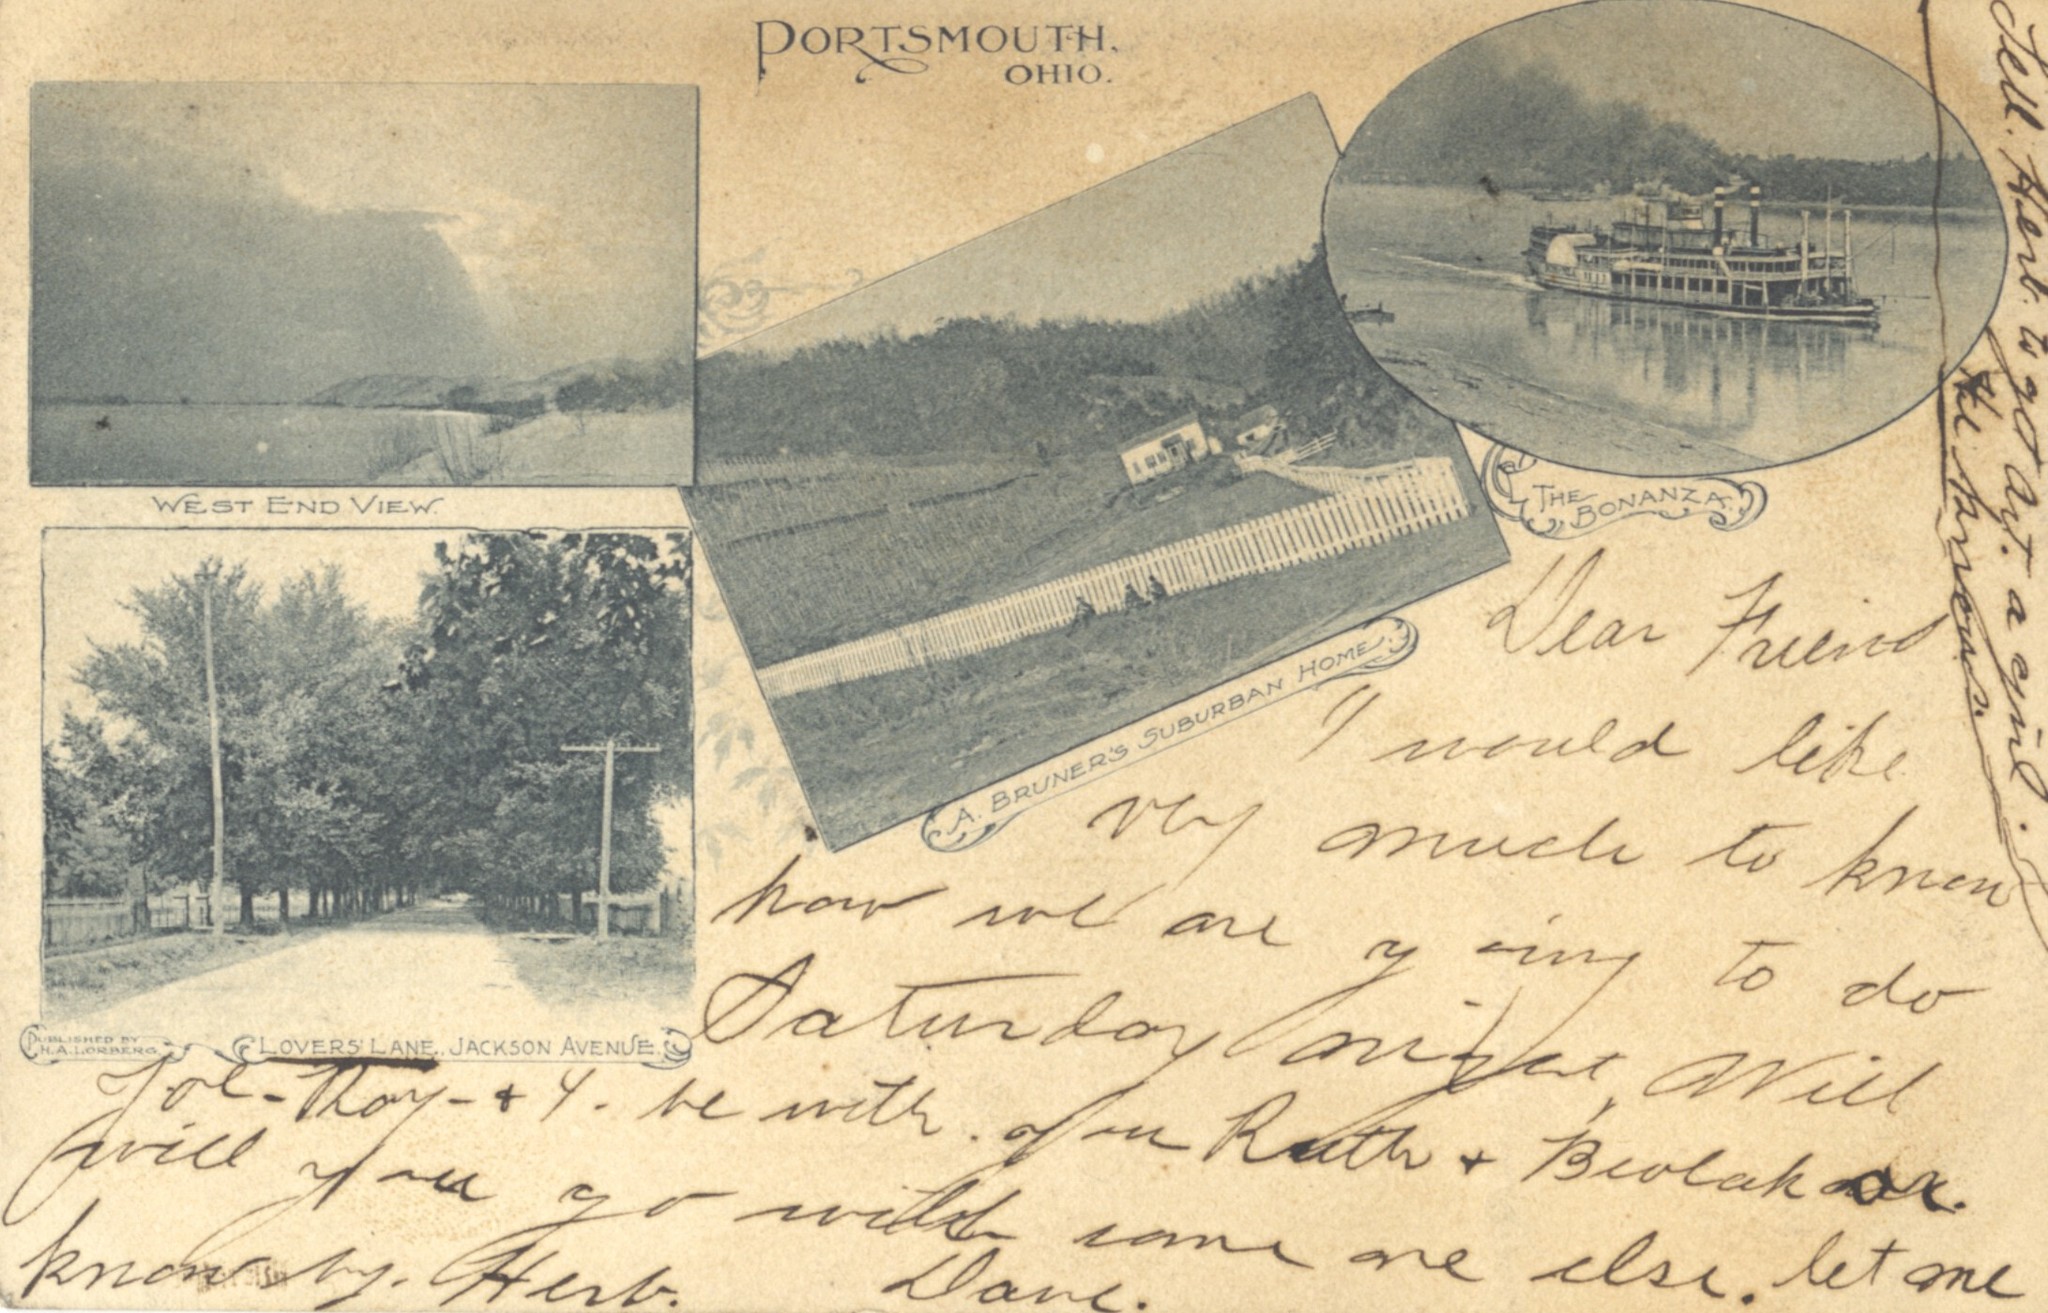 PORTSMOUTH,
OHIO.
WEST END VIEW.
THE
BONANZA.
A. BRUNER'S SUBURBAN HOME
PUBLISHED BY
H. A. LORBERG.
LOVERS' LANE, JACKSON AVENUE.
Dear Friend
I would like
very much to know
how we are going to do
Saturday night, Will
Joe - Roy - & I. be with you Ruth &
will you go with some one else. let me
know by. Herb. Dave.
Tell. Herb. to get Art. a girl.